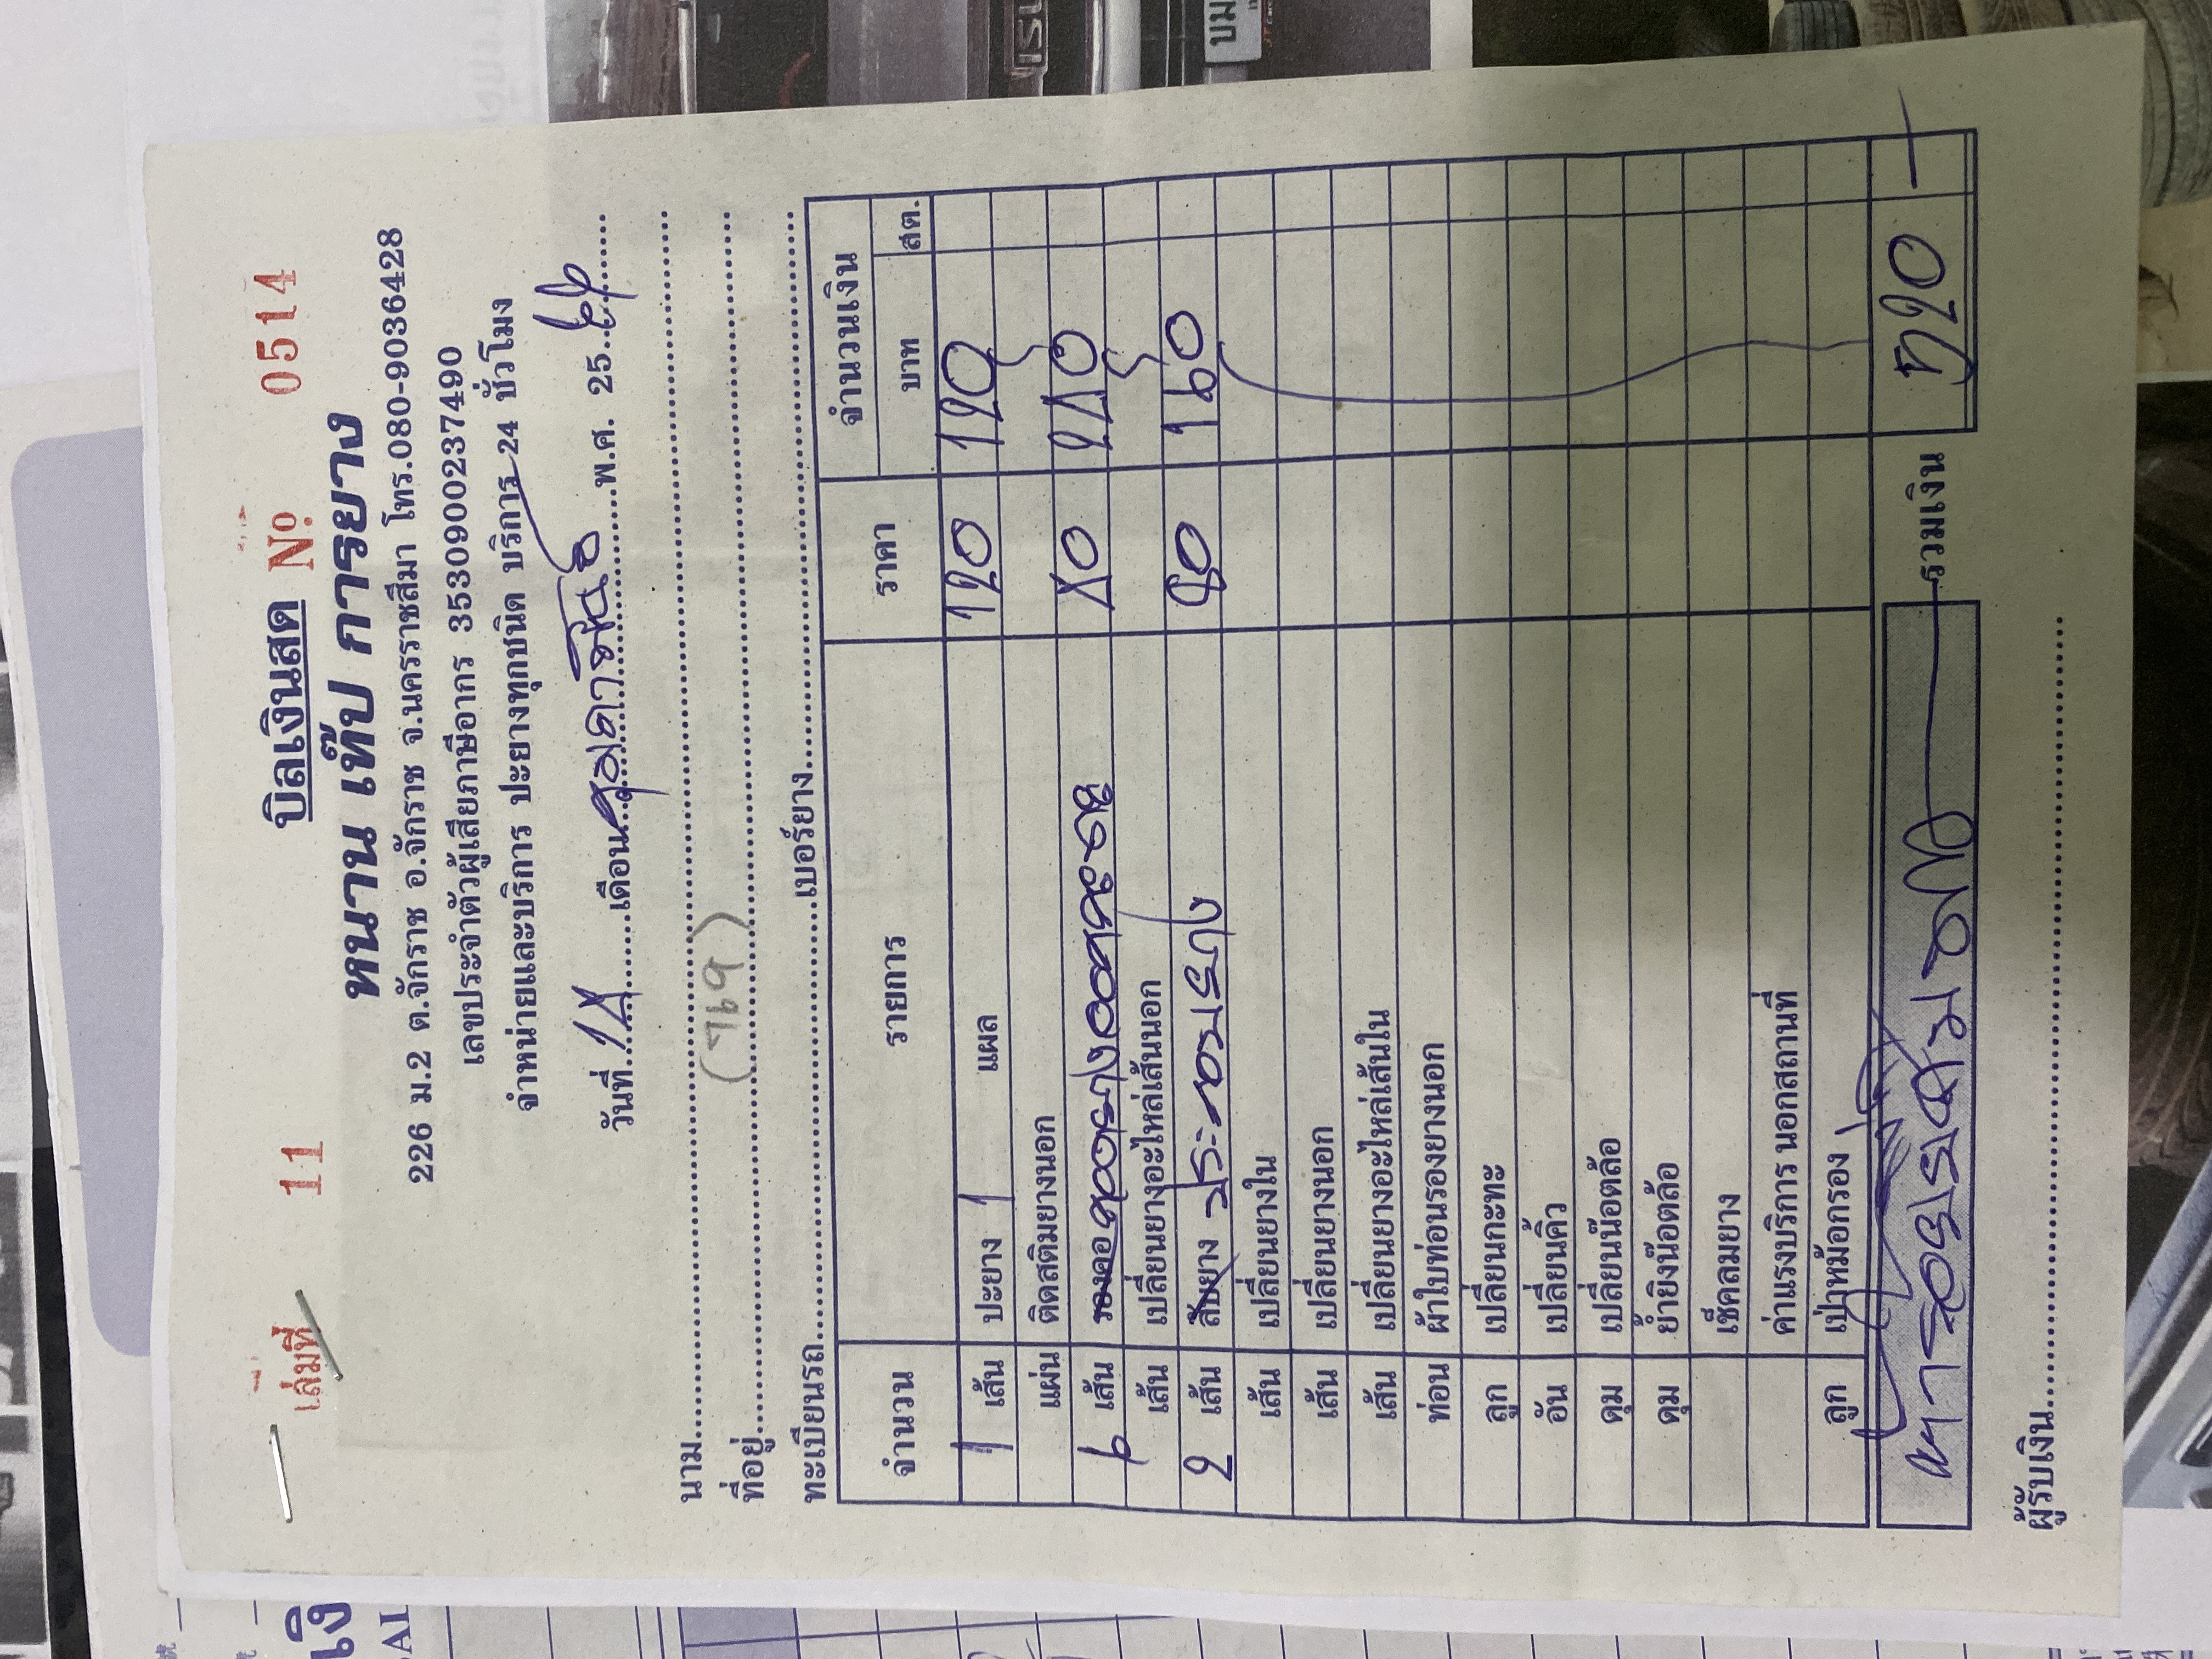 เล่มที่ 11 บิลเงินสด № 0514
หนาน เท๊ป การยาง
226 ม.2 ต.จักราช อ.จักราช จ.นครราชสีมา โทร.080-9036428
เลขประจำตัวผู้เสียภาษีอากร 3530900237490
จำหน่ายและบริการ ปะยางทุกชนิด บริการ 24 ชั่วโมง
วันที่ 14 เดือน พ.ศ. 25
นาม
ที่อยู่
ทะเบียนรถ เบอร์ยาง
จำนวน รายการ ราคา จำนวนเงิน
บาท สต.
1 เส้น ปะยาง 1 แผล 120 120
แผ่น ติดสติมยางนอก
6 เส้น ถอดยาง 40 240
เส้น เปลี่ยนยางอะไหล่เส้นนอก
2 เส้น สับยาง ประกอบยาง 80 160
เส้น เปลี่ยนยางใน
เส้น เปลี่ยนยางนอก
เส้น เปลี่ยนยางอะไหล่เส้นใน
ท่อน ผ้าใบท่อนรองยางนอก
ลูก เปลี่ยนกะทะ
อัน เปลี่ยนคิ้ว
ดุม เปลี่ยนน๊อตล้อ
ดุม ย้ำยิงน๊อตล้อ
เช็คลมยาง
ค่าแรงบริการ นอกสถานที่
ลูก เป่าหม้อกรอง
ห้าร้อยยี่สิบบาท รวมเงิน 520 -
ผู้รับเงิน